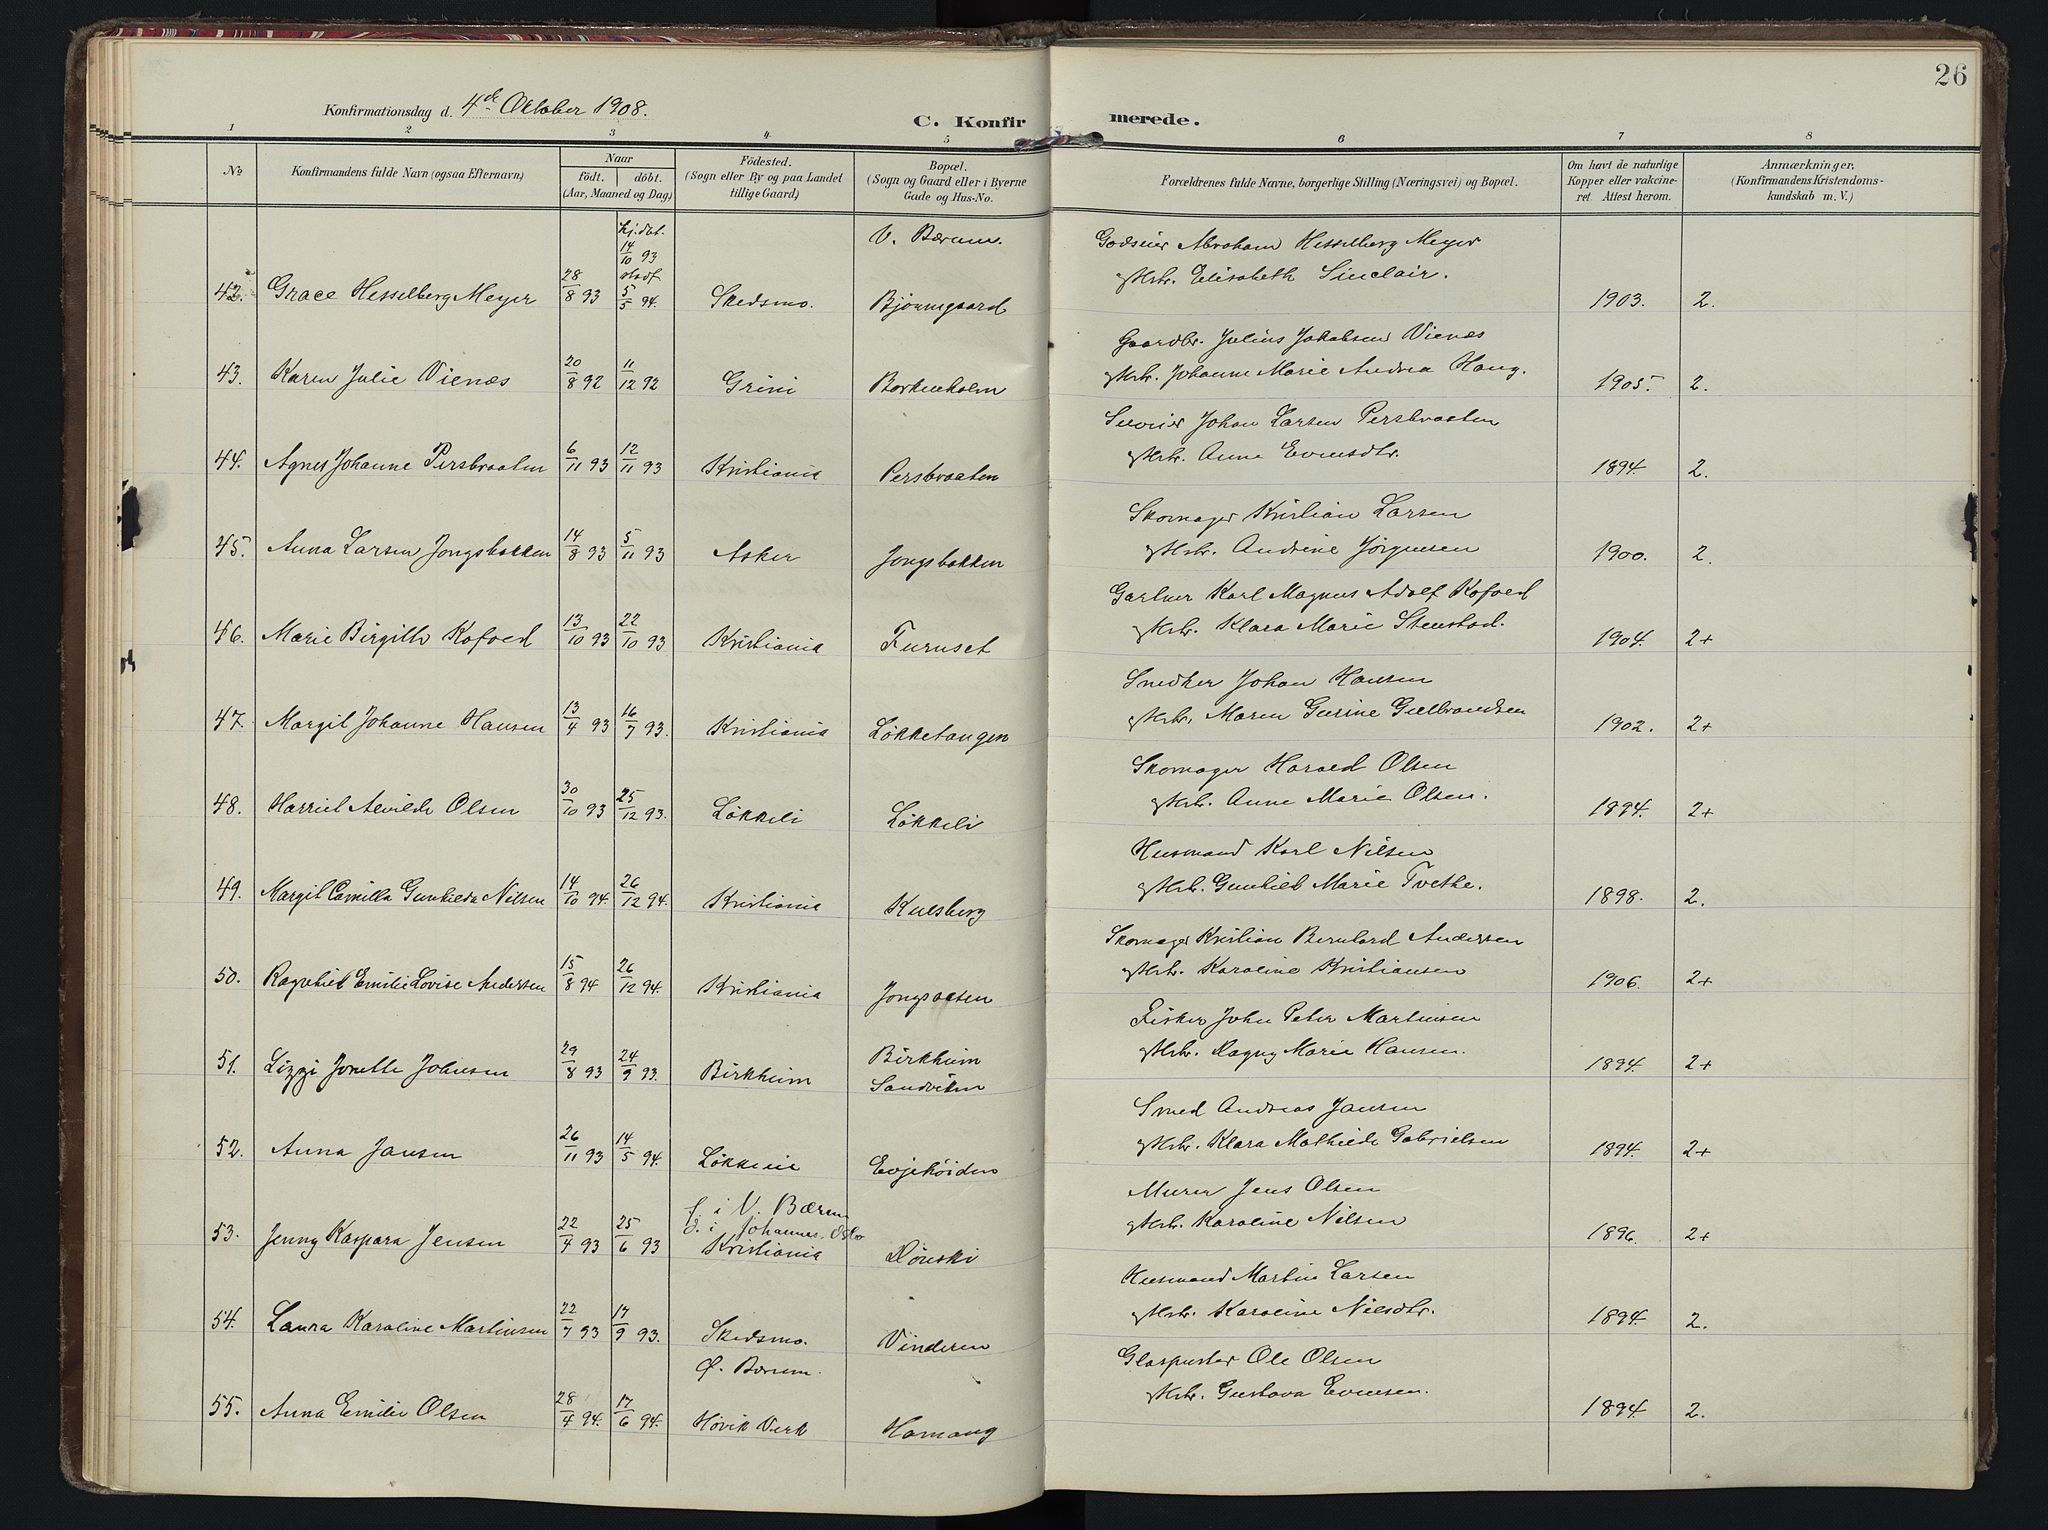 26
Konfirmationsdag d. 4de Oktober 1908.
C. Konfirmerede.
1 2 3 4 5 6 7 8
No
Konfirmandens fulde Navn (ogsaa Efternavn)
Naar
födt. döbt.
(Aar, Maaned og Dag)
Födested.
(Sogn eller By og paa Landet
tillige Gaard)
Bopæl.
(Sogn og Gaard eller i Byerne
Gade og Hus-No.
Forældrenes fulde Navne, borgerlige Stilling (Næringsvei) og Bopæl.
Om havt de naturlige
Kopper eller vakcine-
ret. Attest herom.
Anmærkninger,
(Konfirmandens Kristendoms-
kundskab m. V.)
hj. dbt. 14/10 93 stadf. V. Bærum. Godseier Abraham Hesselberg Meyer
og Hstr. Elisabeth Sinclair.
42. Grace Hesselberg Meyer 28/8 93 5/5 94. Skedsmo. Bjørumgaard 1903. 2.
Gaardbr. Julius Jakobsen Vienæs
43. Karen Julie Vienæs 20/8 92 11/12 92 Grini Barkenholm og Hstr. Johanne Marie Andrea Haug. 1905. 2.
Johan Larsen Persbraaten
44. Agnes Johanne Persbraaten 6/11 93 12/11 93 Kristiania Persbraaten og Hstr. Anne Evensdtr. 1894. 2.
Skomager Kristian Larsen
45. Anna Larsen Jongsbakken 14/8 93 5/11 93 Asker Jongsbakken og Hstr. Andrine Jørgensen 1900. 2.
Gartner Karl Magnus Adolf Kofoed
46. Marie Birgith Kofoed 13/10 93 22/10 93 Kristiania Furuset og Hstr. Klara Marie Stenstad. 1904. 2+
Snedker Johan Hansen
47. Margit Johanne Hansen 13/4 93 16/7 93. Kristiania Løkketangen og Hstr. Maren Gurine Gulbrandsen 1902. 2+
Skomager Harald Olsen
48. Harriet Alvilde Olsen 30/10 93 25/12 93. Løkkeli Løkkeli og Hstr. Anne Marie Olsen. 1894. 2+
Husmand Karl Nilsen
49. Margit Camilla Gunhilda Nilsen 14/10 94. 26/12 94. Kristiania Kulsberg og Hstr. Gunhild Marie Tvethe. 1898. 2.
Skomager Kristian Bernhard Andersen
50. Ragnhild Emilie Lovise Andersen 15/8 94 26/12 94. Kristiania Jongsaasen og Hstr. Karoline Kristiansen 1906. 2+
Fisker John Peter Martinsen
51. Lizzi Jonette Johnsen 29/8 93 24/9 93. Birkheim Birkheim
Sandviken og Hstr. Dagny Marie Hansen. 1894. 2+
Smed Andreas Jansen
52. Anna Jansen 26/11 93 14/5 94. Evjehøiden og Hstr. Klara Mathilde Gabrielsen 1894. 2+
f. i V. Bærum Murer Jens Olsen
d. i Johannes. Oslo
53. Jenny Kaspara Jensen 22/4 93 25/6 93 Kristiania Dønski og Hstr. Karoline Nilsen 1896. 2+
Husmand Martin Larsen
54. Laura Karoline Martinsen 22/7 93 17/9 93. Skedsmo. Vinderen og Hstr. Karoline Nilsdtr. 1894. 2.
Ø. Bærum. Glaspuster Ole Olsen
55. Anna Emilie Olsen 28/4 94. 17/6 94. Høvik Verk Hamang og Hstr. Gustava Evensen. 1894. 2.